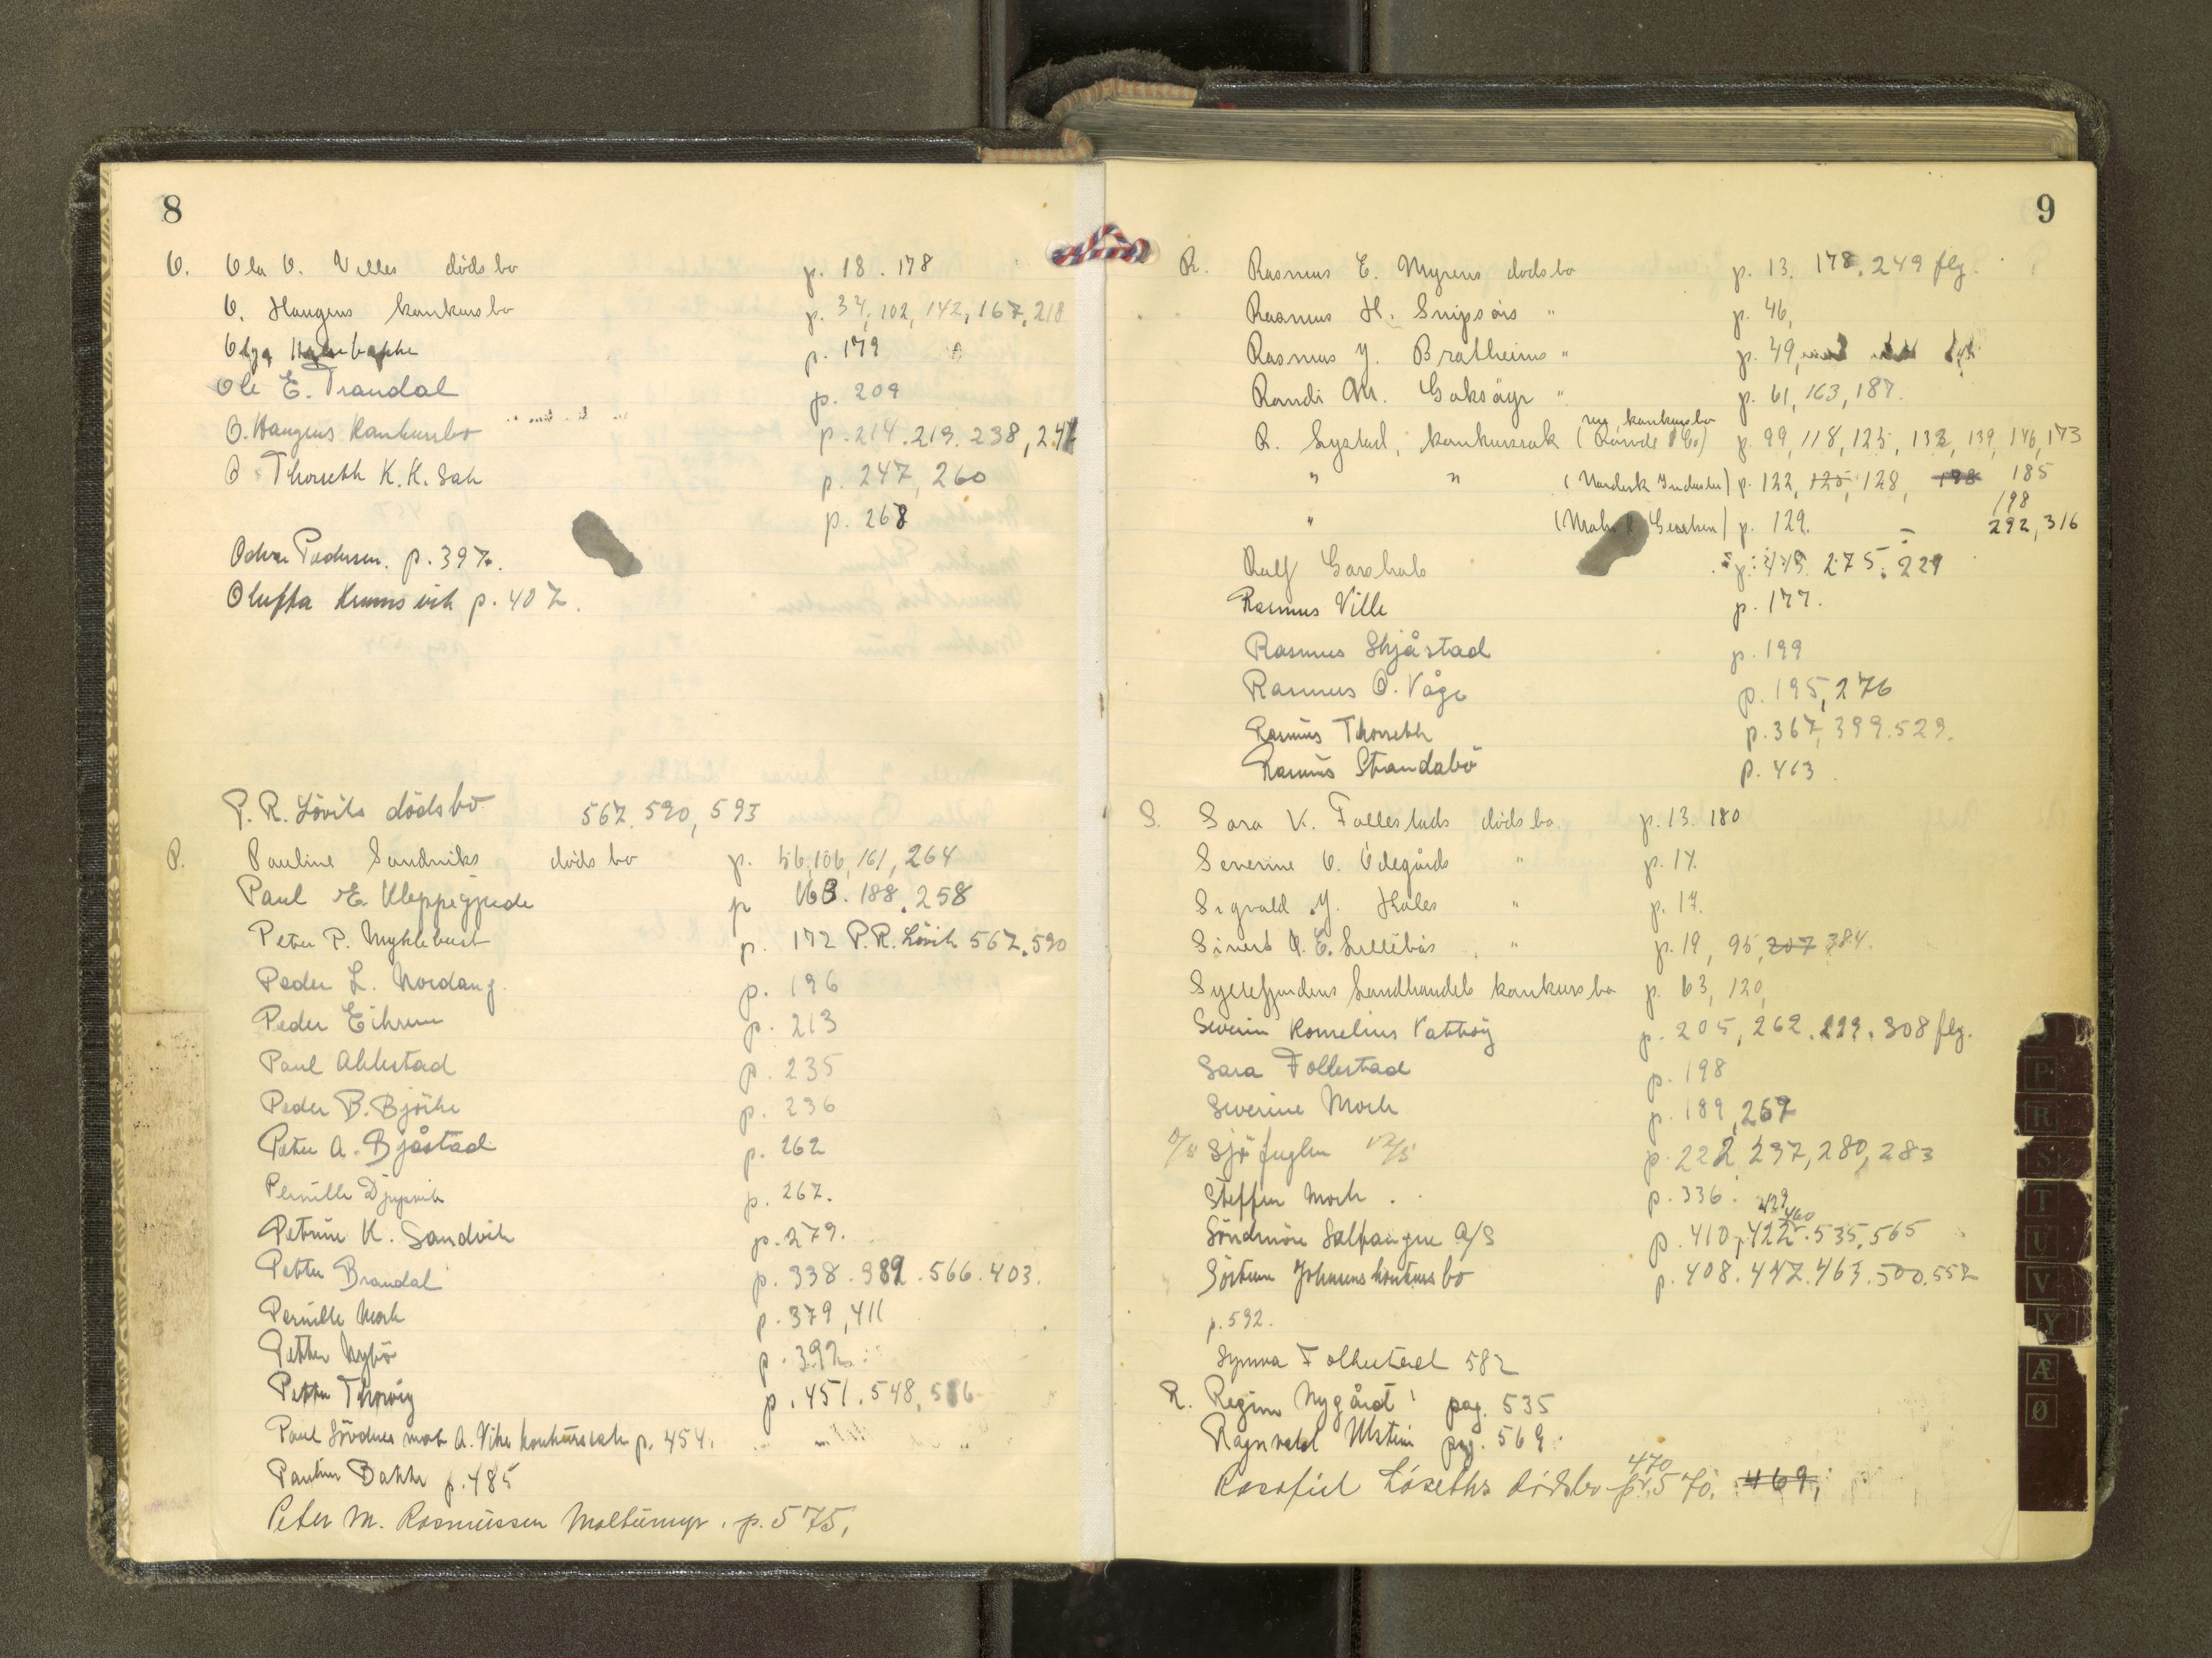 8
O. Ola O. Velles dödsbo p. 18. 178
O. Haugens konkursbo p. 34, 102, 142, 167, 218
Olga p. 179
Ole E. Trandal p. 209
O. Haugens Konkursbo p. 214. 219. 238, 241
O Thorseth K.K. Sak p. 247, 260
p. 268
Pedersen. p. 397.
Oluffa Krumsvik p. 407.
P. R. Löviks dödsbo 567. 590, 593
P. Pauline Sandviks dödsbo p. 56, 106, 161, 264
Paul E. Kleppegjerde p 163. 188. 258
Peter P. Myklebust p. 172 P.R. Lövik 567. 590
Peder L. Nordang. p. 196
Peder Eiksun p. 213
Paul Ahlestad p. 235
Peder B. Björke p. 236
Peter A. Bjåstad p. 262
Pernille Djupvik p. 267.
Petrine K. Sandvik p. 279.
Petter Brandal p. 338. 389. 566. 403.
Pernille Mork p. 379, 411
Petter Nybö p. 392
Petter p. 451. 548, 586
Paul Lövdnes mot A. Vikes konkurssak p. 454.
Pauline Bakke p. 485
Peter M. Rasmussen Moltumyr. p. 575,
9
R. Rasmus E. Myrens dödsbo p. 13. 178. 249 flg.
Rasmus H. Snipsöirs " p. 46,
Rasmus J. Bratheims " p. 49,
Randi M. Goksöyr " p. 61, 163, 187.
nu, konkursbo
R. Systad, konkurssak (Runde & Co) p. 99, 118, 125, 132, 139, 146, 173
" " (Nordisk Industri) p. 122, 125, 128, 198 185
198
" (Mohn & Geerken) p. 129. 292, 316
Ralf Garshols p. 275. 229
Rasmus Ville p. 177.
Rasmus Skjåstad p. 199
Rasmus O. Våge p. 195, 276
Rasmus Thorseth p. 367, 399. 529.
Rasmus Strandabö p. 463.
S. Sara K. Follestads dödsbo. p. 13. 180
Severine O. Ödegårds " p. 17.
Sigvald J. Hales " p. 17.
Sivert A. E. Lillebös " p. 19, 95, 207 384.
Syltefjordens Landhandels konkursbo p. 63, 120,
Severin Kornelius Vattöy p. 205, 262. 299. 308 flg.
Sara Follestad p. 198
Severine Mork p. 189, 267
Sjöfuglen p. 222 237, 280, 283
Steffen Mork. p. 336.
429 460
Söndmöre Salpangre A/S p. 410, 422. 535. 565
Johnsens konkursbo p. 408. 447. 463. 500. 552
p. 592.
Synnva Follestad 582
R. Regine Nygårdt pag. 535
Ragnvald Ulstein pag. 569.
470
Rasofiel Löseths dödsbo p. 570. 469,
P
R
S
T
U
V
Y
Æ
Ø